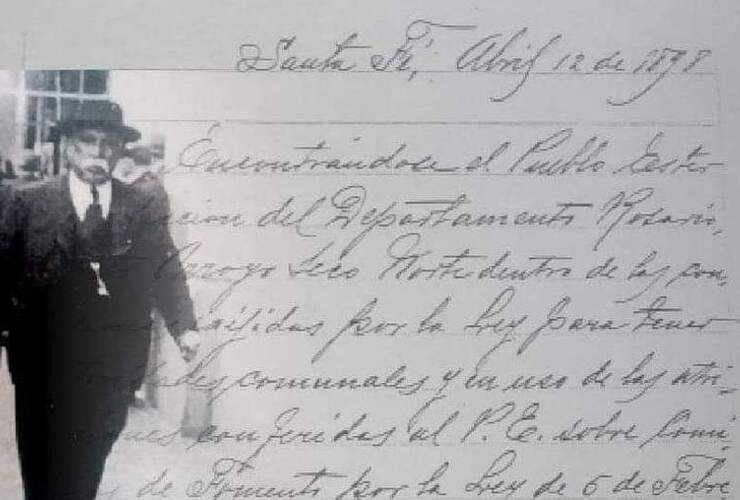 Santa Fé, Abril 12 de 1898
Encontrándose el Pueblo Ester
cion del Departamento Rosario,
Arroyo Seco Norte dentro de las con-
exijidas por la Ley para tener
comunales y en uso de las atri-
ciones conferidas al P. E. sobre Comi-
de Fomento por la Ley de 5 de Febre